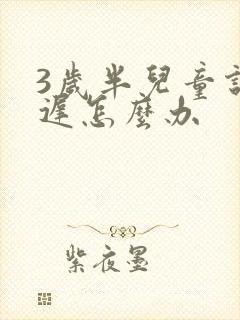 3歲半兒童
遲怎麼办
紫夜墨